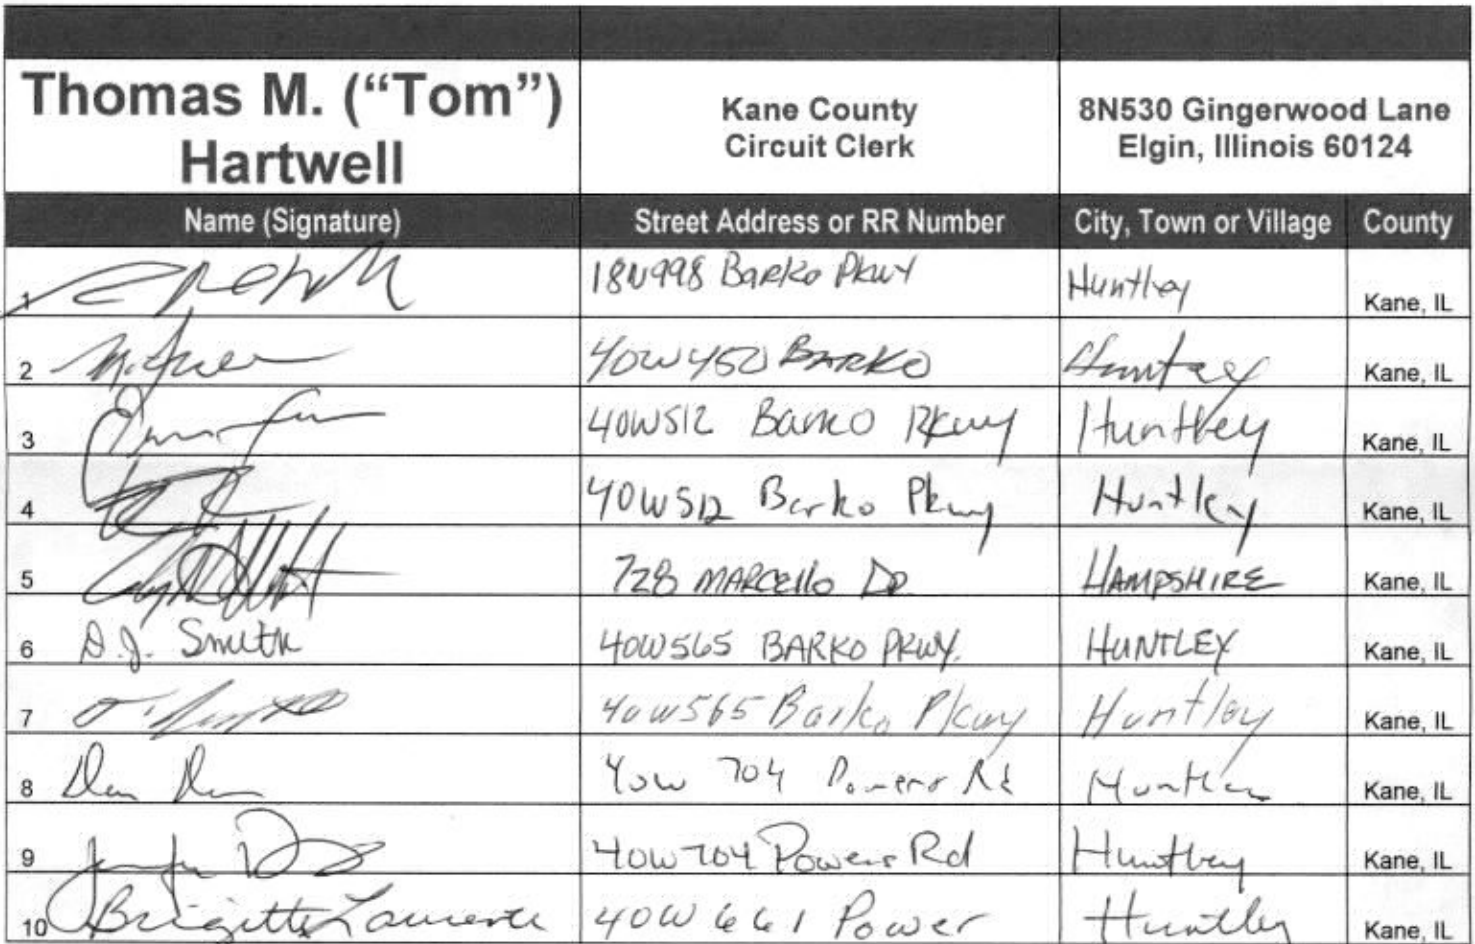 Thomas M. (“Tom”) Hartwell Kane County Circuit Clerk 8N530 Gingerwood Lane Elgin, Illinois 60124
Name (Signature) Street Address or RR Number City, Town or Village County
1 18N998 Barko Pkwy Huntley Kane, IL
2 40W450 BARKO Huntley Kane, IL
3 40W512 Barko Pkwy Huntley Kane, IL
4 40W512 Barko Pkwy Huntley Kane, IL
5 728 MARCELLO DR HAMPSHIRE Kane, IL
6 D.J. Smith 40W565 BARKO PKWY. HUNTLEY Kane, IL
7 40W565 Barko Pkwy Huntley Kane, IL
8 40W 704 Powers Rd Huntley Kane, IL
9 40W704 Powers Rd Huntley Kane, IL
10 Brigitte Lawrence 40W661 Power Huntley Kane, IL